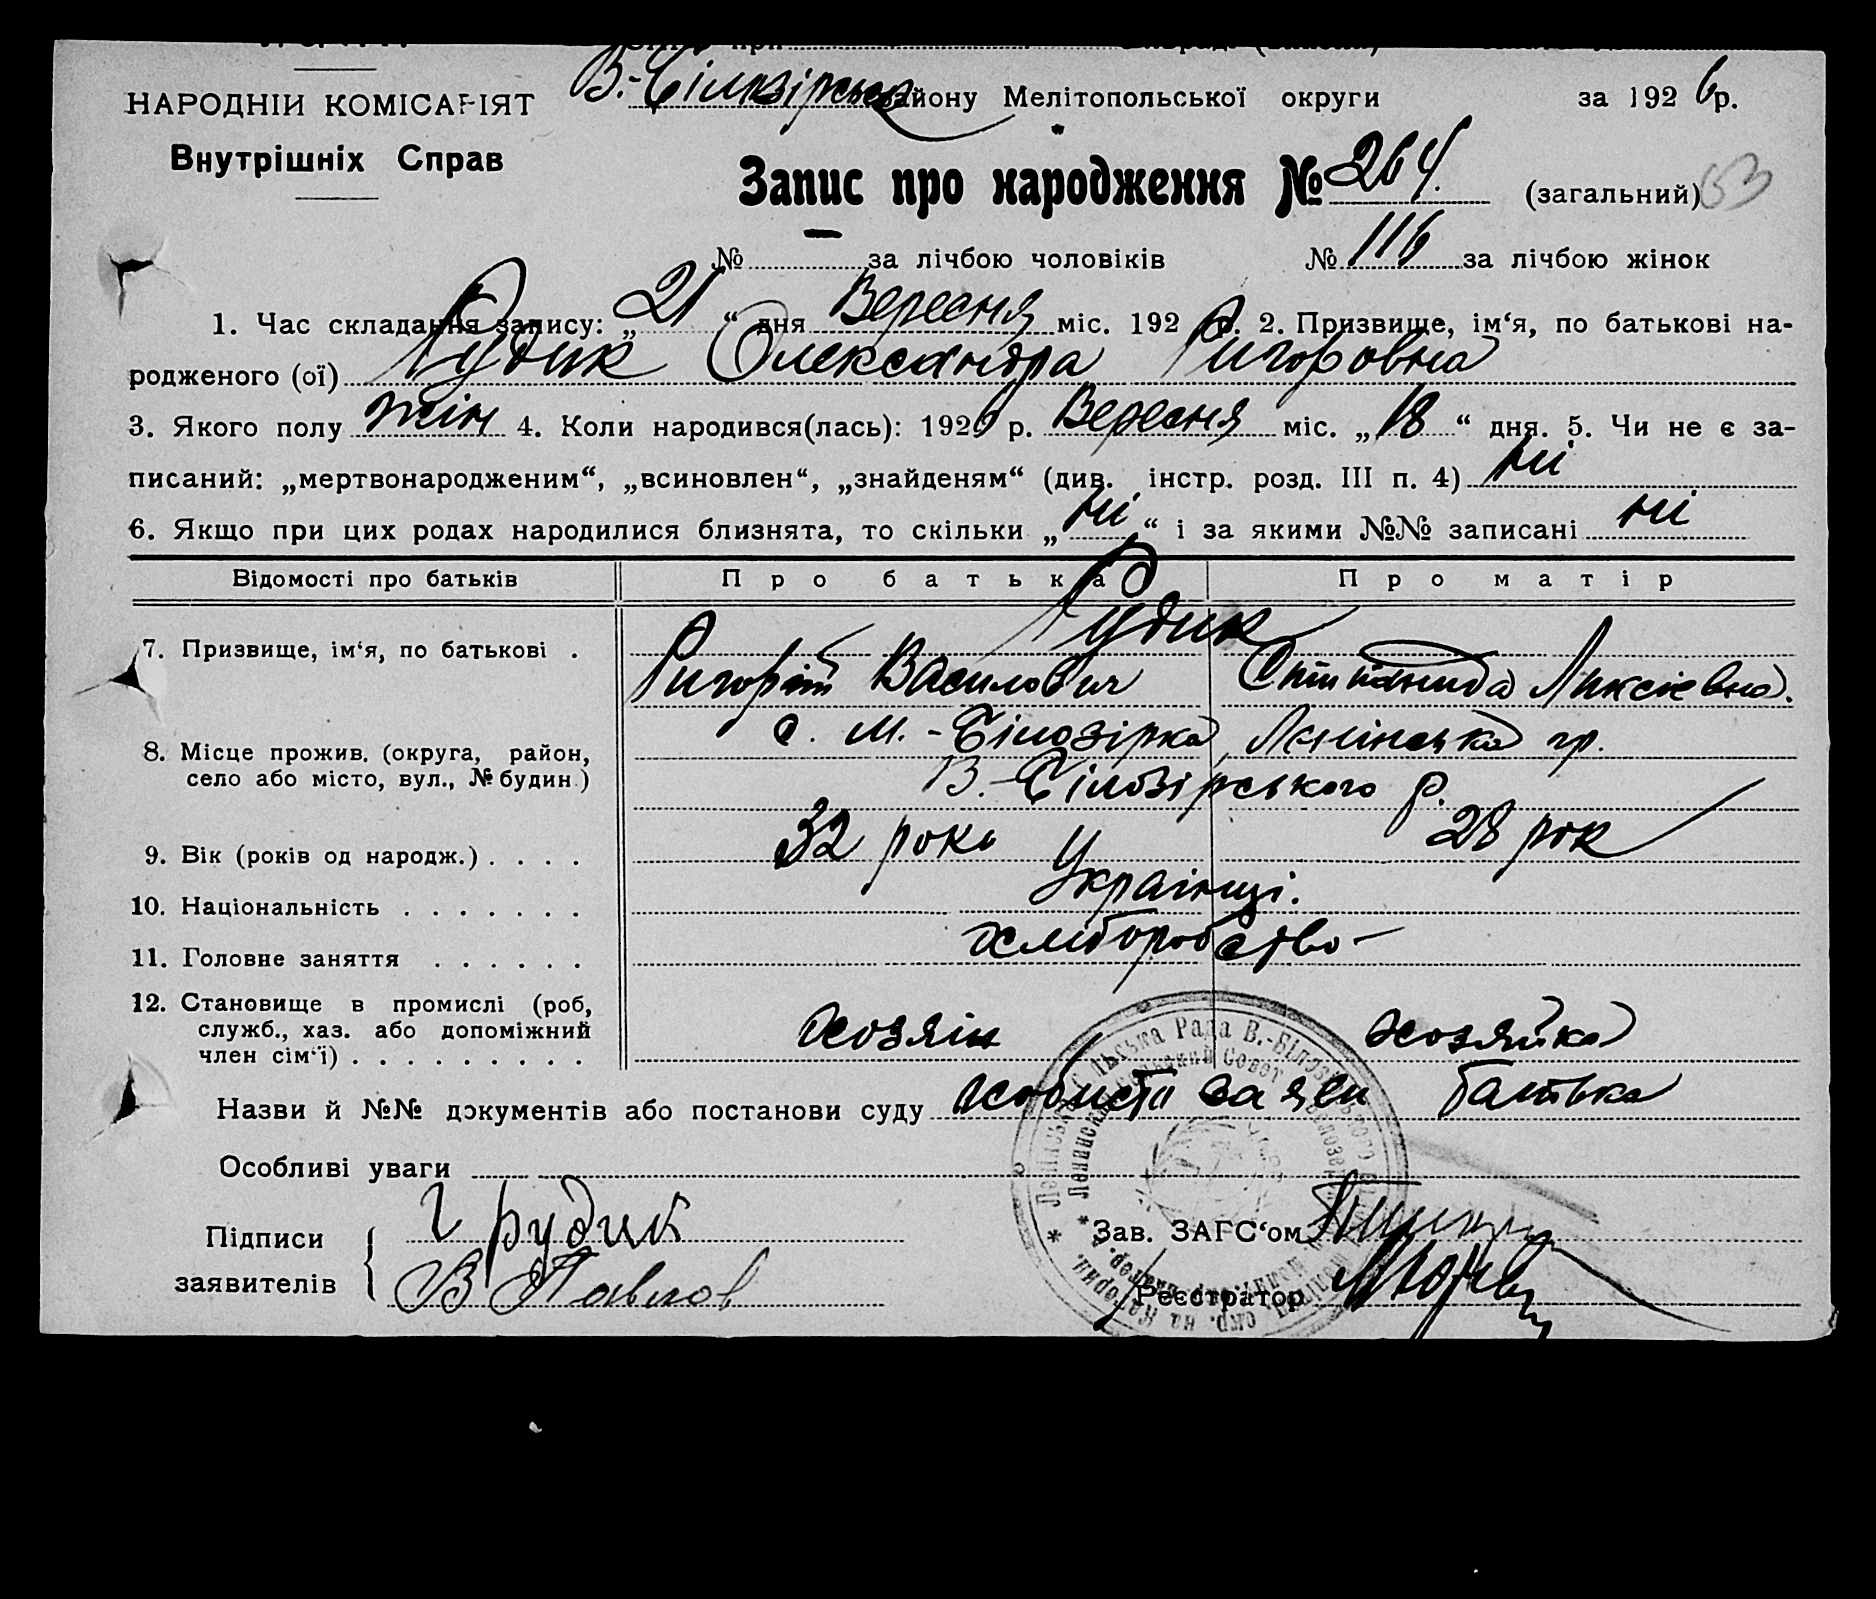 В.-Білозірськ району Мелітопольської округи за 1926 р.
НАРОДНІЙ КОМІСАРІЯТ
Внутрішніх Справ
Запис про народження № 264. (загальний) 53
№ — за лічбою чоловіків № 116 за лічбою жінок
1. Час складання запису: „21“ дня Вересня міс. 1926 р. 2. Призвище, ім‘я, по батькові на-
родженого (ої) Рудик Олександра Григоровна
3. Якого полу жін 4. Коли народився(лась): 1926 р. Вересня міс. „18“ дня. 5. Чи не є за-
писаний: „мертвонародженим“, „всиновлен“, „знайденям“ (див. інстр. розд. III п. 4) ні
6. Якщо при цих родах народилися близнята, то скільки „ні“ і за якими №№ записані ні
Відомості про батьків Про батька Про матір
Рудик
7. Призвище, ім‘я, по батькові . Григорій Василович Степанида Ликсіевна.
8. Місце прожив. (округа, район, с. М.-Білозірка, Ленінська гр.
село або місто, вул., № будин.) В.-Білозірського р.
9. Вік (років од народж.) . . . . 32 роки 28 рок
10. Національність . . . . . . . Українці.
11. Головне заняття . . . . . . хліборобство
12. Становище в промислі (роб,
служб., хаз. або допоміжний
член сім‘ї) . . . . . . . . . хозяін хозяйка
Назви й №№ документів або постанови суду особиста заява батька
Особливі уваги
Підписи Г Рудик Зав. ЗАГС‘ом
заявителів В Павлов Реєстратор